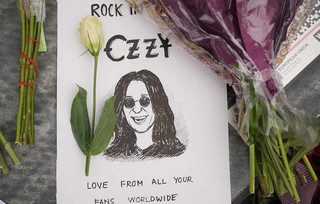 ROCK IN
OZZY
LOVE FROM ALL YOUR
FANS WORLDWIDE